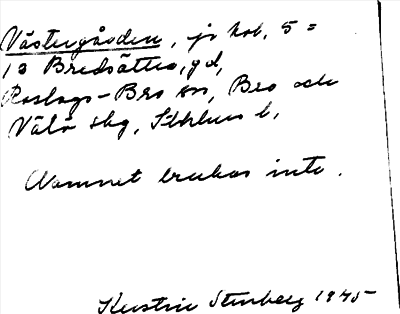 Västergården, jr hob, 5 =
13 Bredsättra, gd,
Roslags-Bro sn, Bro och
Välö skg, Sthlms l,
Namnet brukas inte.
Kerstin Stenberg 1945